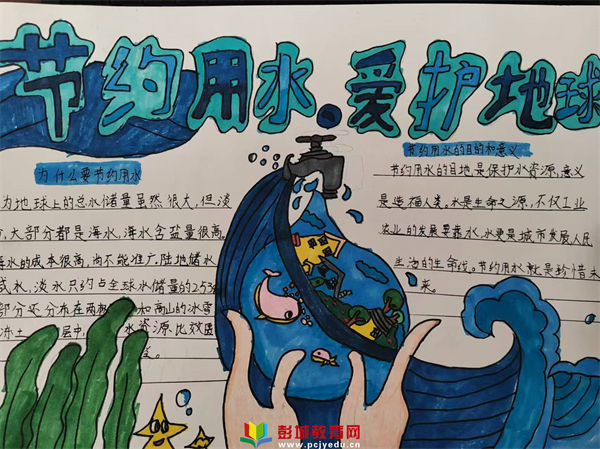 节约用水 爱护地球
为什么要节约用水
为地球上的总水储量虽然很大,但淡
大部分都是海水,海水含盐量很高,
海水的成本很高,尚不能推广.陆地储水
咸水,淡水只约占全球水储量的2.53%
部分还分布在两极 和高山的冰雪
冻土 层中, 水资源比较
节约用水的目的和意义
节约用水的目地是保护水资源,意义
是造福人类,水是生命之源,不仅工业
农业的发展要靠水,水更是城市发展人民
生活的生命线。节约用水就是珍惜未
来。
彭城教育网
www.pcjyedu.cn